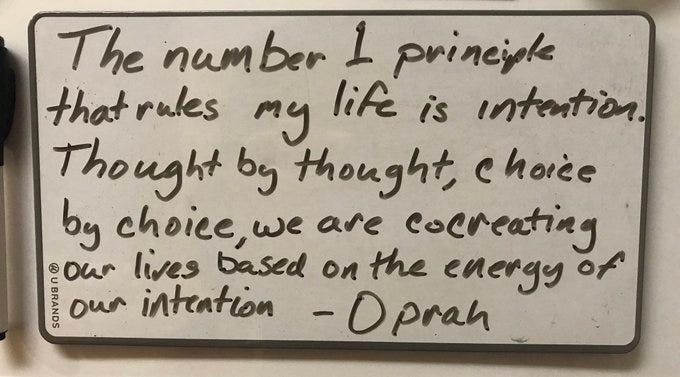 The number 1 principle
that rules my life is intention.
Thought by thought, choice
by choice, we are cocreating
our lives based on the energy of
our intention - Oprah
U BRANDS